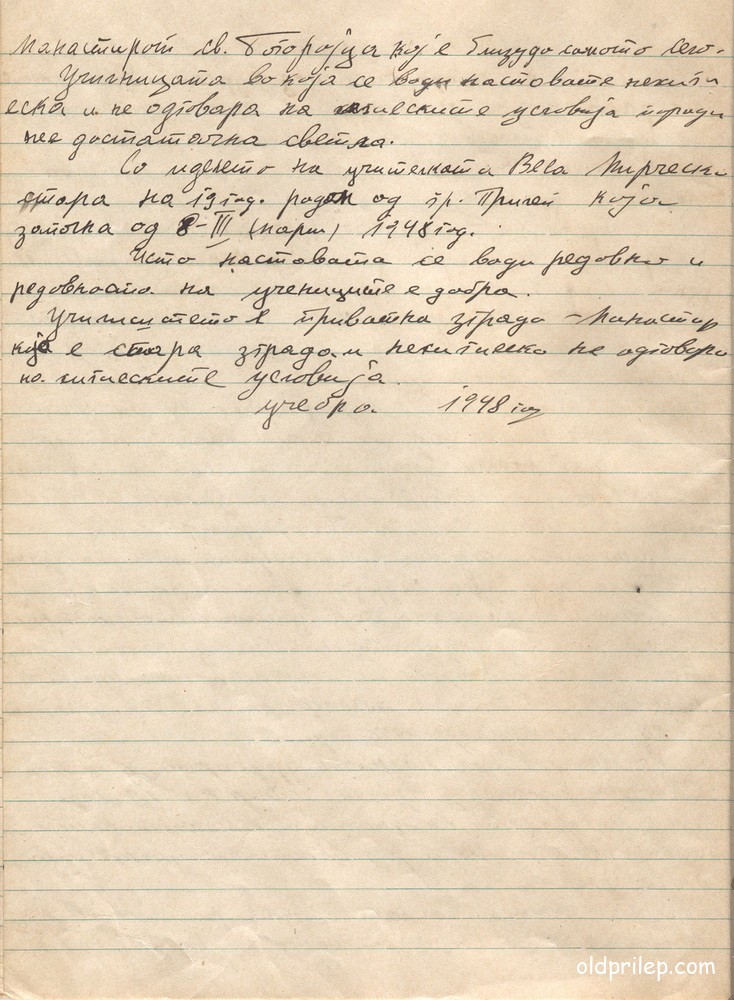 Манастирот св. Богоројца кој е близудо самото село.
Училницата во која се води наставате нехиги
еска и не одговара на хигиеските условија поради
нее достаточна светла.
Со идењето на учителката Вела Мирческа
стара на 19 год. родом од гр. Прилеп која
започна од 8-III (март) 1948 год.
Исто наставата се води редовно и
редовноста на учениците е добра.
Училиштето е приватна зграда - Манастир
која е стара зграда и нехигиеска не одговара
на хигиеските условија.
1948 год
oldprilep.com